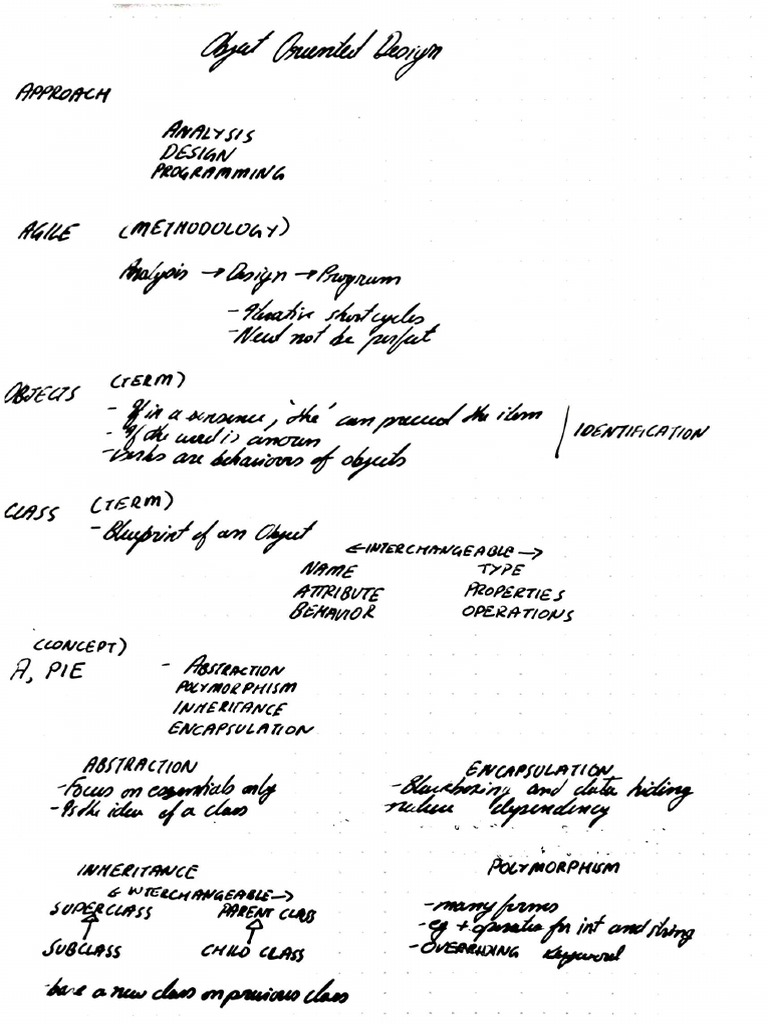 Object Oriented Design
APPROACH
ANALYSIS
DESIGN
PROGRAMMING
AGILE (METHODOLOGY)
Analysis → Design → Program
- Iterative short cycles
- Need not be perfect
OBJECTS (TERM)
- If in a sentence, 'the' can preceed the item
- If the word is a noun
- verbs are behaviours of objects
IDENTIFICATION
CLASS (TERM)
- Blueprint of an Object
← INTERCHANGEABLE →
NAME TYPE
ATTRIBUTE PROPERTIES
BEHAVIOR OPERATIONS
(CONCEPT)
A, PIE - ABSTRACTION
POLYMORPHISM
INHERITANCE
ENCAPSULATION
ABSTRACTION
- Focus on essentials only
- Is the idea of a class
ENCAPSULATION
- Blackboxing and data hiding
reduce dependency
INHERITANCE
← INTERCHANGEABLE →
SUPERCLASS PARENT CLASS
SUBCLASS CHILD CLASS
- base a new class on previous class
POLYMORPHISM
- many forms
- eg + operator for int and string
- OVERRIDING keyword